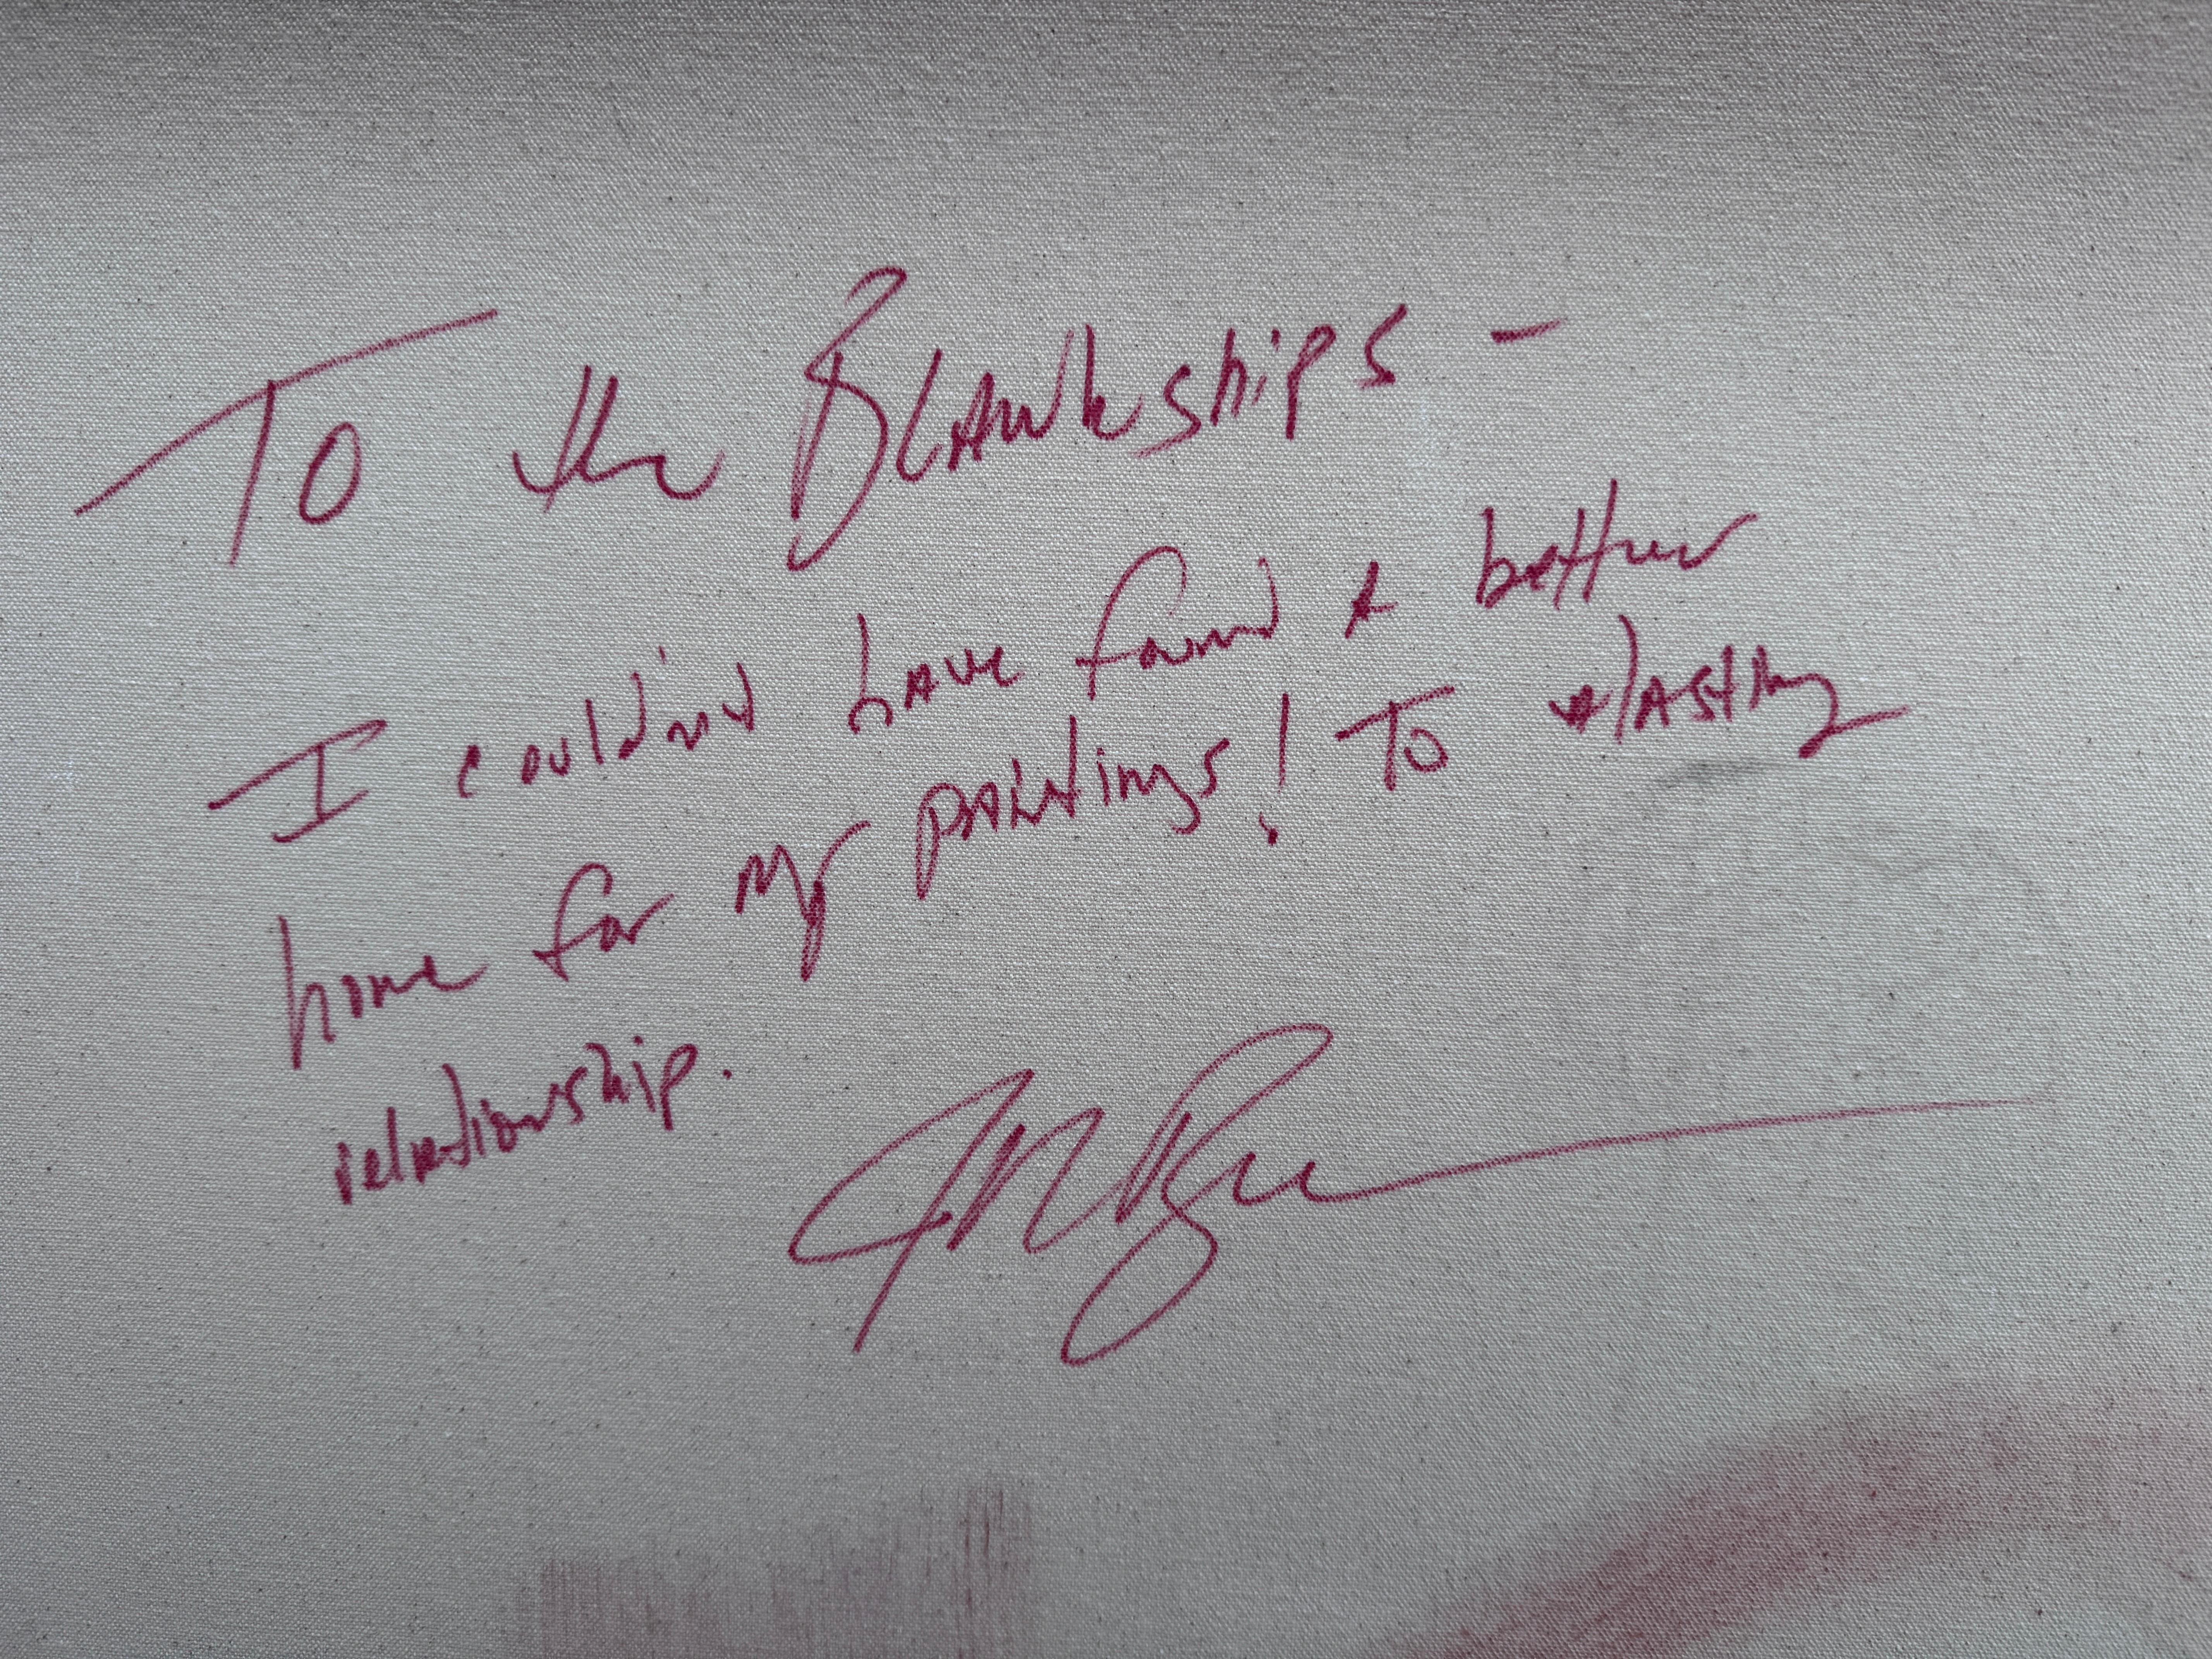 To the Blankships -
I couldn't have found a better
home for my paintings! To a lasting
relationship.